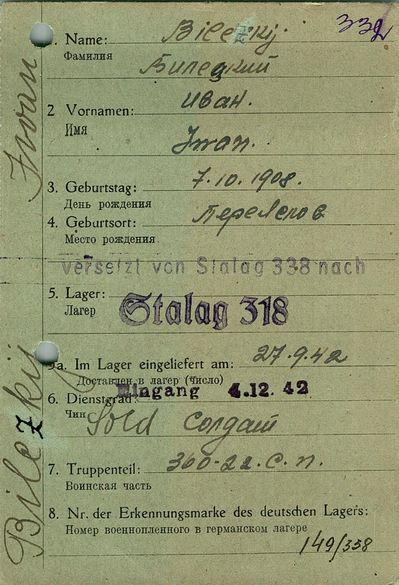 332
1. Name: Bilezkij.
Фамилия Билецкий
2 Vornamen: Иван.
Имя Iwan.
3. Geburtstag: 7.10.1908.
День рождения
4. Geburtsort:
Место рождения
versetzt von Stalag 338 nach
5. Lager: Stalag 318
Лагер
5a. Im Lager eingeliefert am: 27.9.42
Доставлен в лагер (число)
Eingang 4.12.42
6. Dienstgrad:
Чин Sold Солдат
7. Truppenteil: 360-22.С.п.
Воинская часть
8. Nr. der Erkennungsmarke des deutschen Lagers:
Номер военнопленного в германском лагере
149/338
Bilezkij Iwan